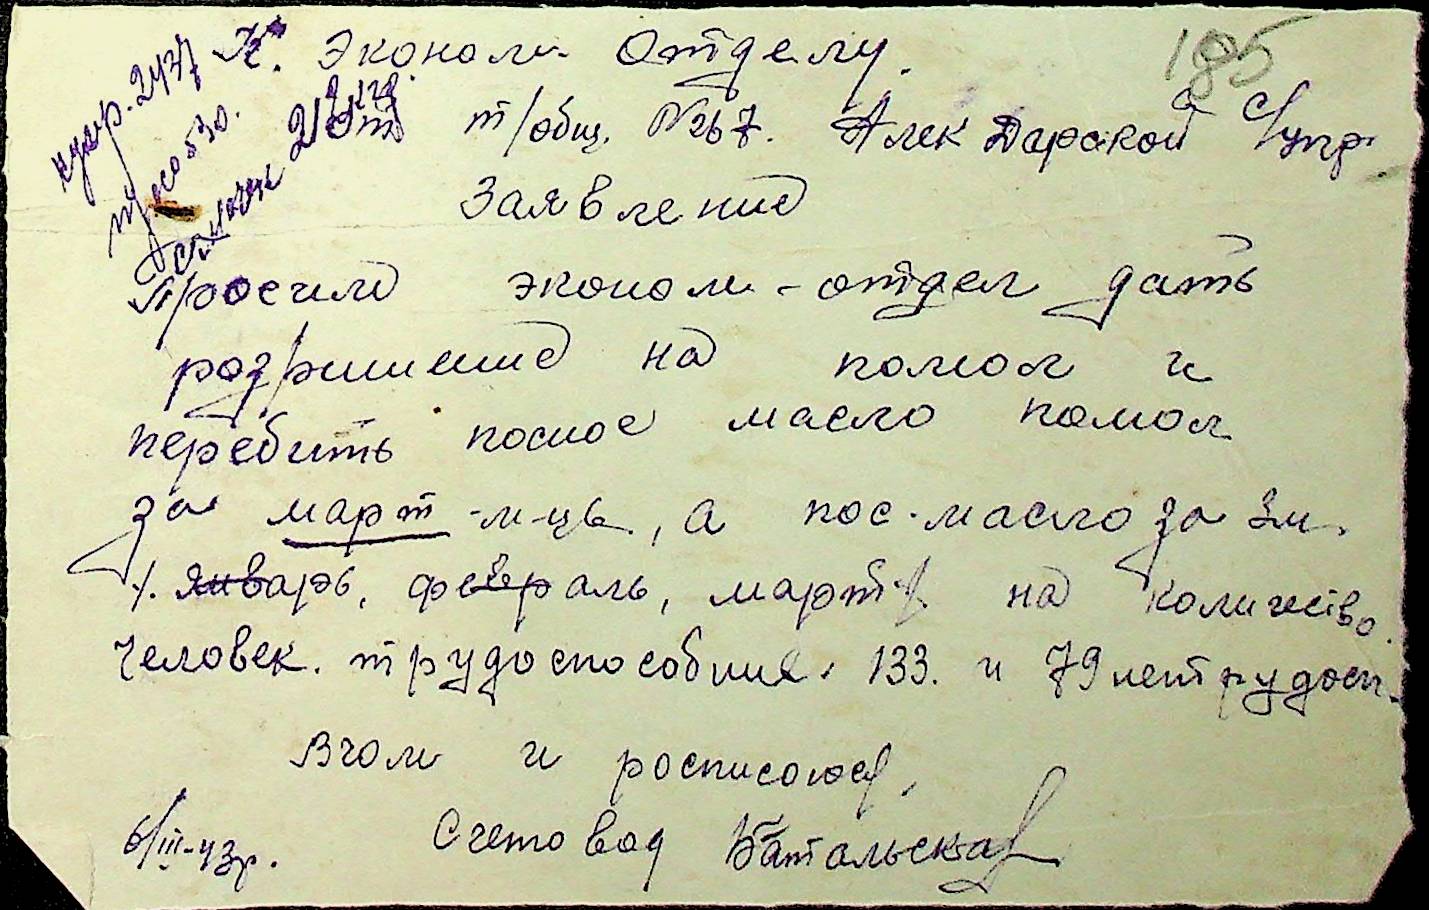 185
К. Эконом. Отделу.
от т/общ. №267. Алек Дарской С/упр.
Заявление
Просим эконом-отдел дать
розришение на помол и
перебить посное масло помол
за март м-ць, а пос.масло за 3м.
январь, февраль, март на количество
человек. трудоспособних. 133. и 79 нетрудосп.
вчом и росписоюся,
6/III-43г. Счетовод Батальская